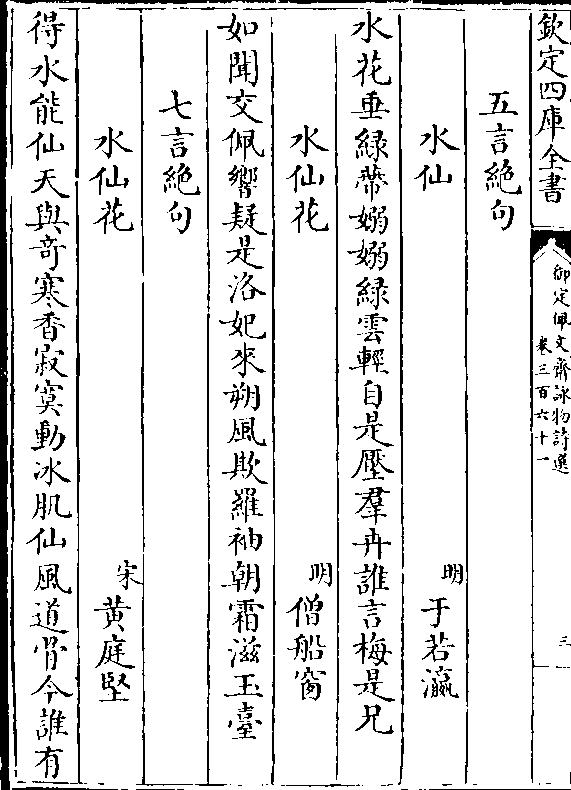 欽定四庫全書
御定佩文齋詠物詩選
卷三百六十一
三
五言絶句
水仙
明
于若瀛
水花垂綠帶嫋嫋綠雲輕自是壓羣卉誰言梅是兄
水仙花
明
僧船窗
如聞交佩響疑是洛妃來朔風欺羅袖朝霜滋玉臺
七言絶句
水仙花
宋
黃庭堅
得水能仙天與竒寒香寂寞動冰肌仙風道骨今誰有